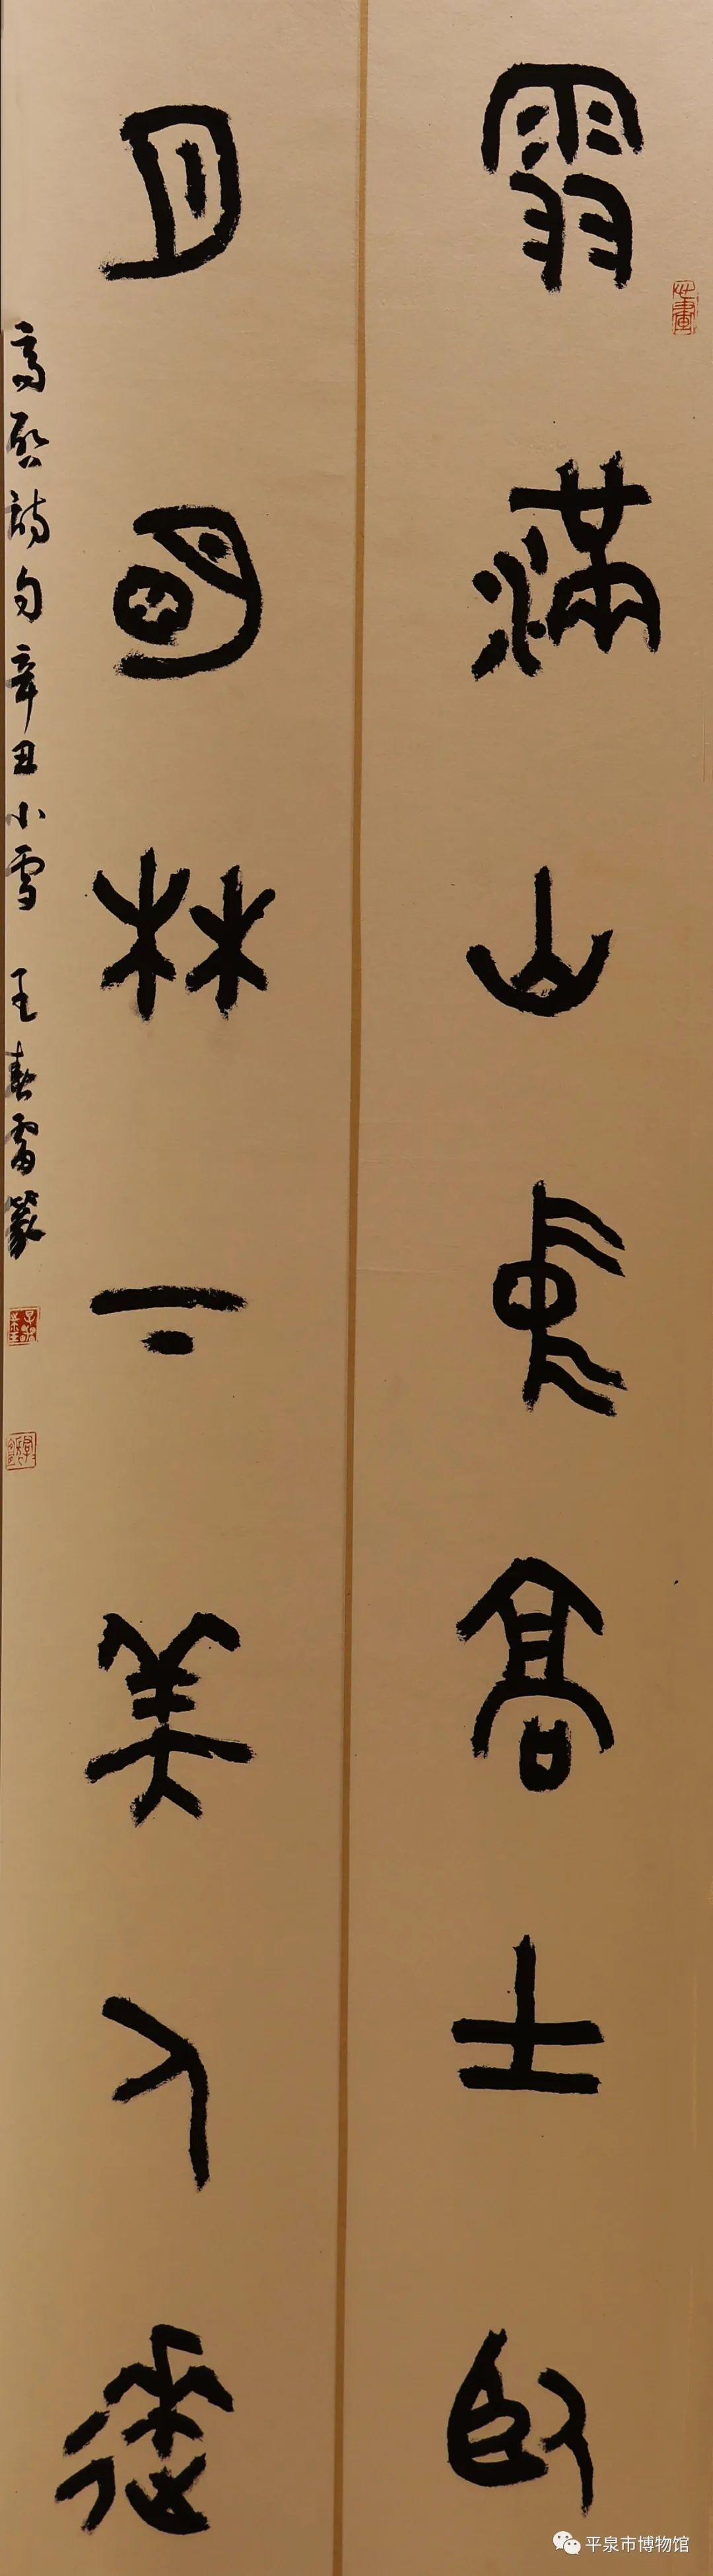 雪满山中高士卧
月明林下美人来
高启诗句辛丑小雪 王春雷篆
平泉市博物馆